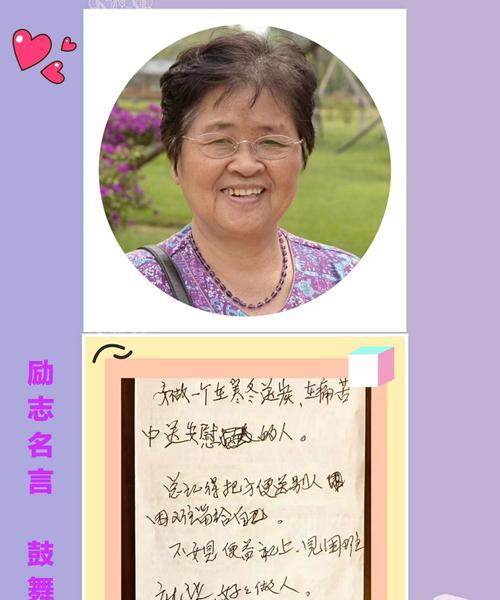 要做一个在寒冬送炭、在痛苦
中送安慰的人。
总记得把方便送别人
困难留给自己。
不要見便益就上、見困难
就让,好好做人。
励志名言 鼓舞